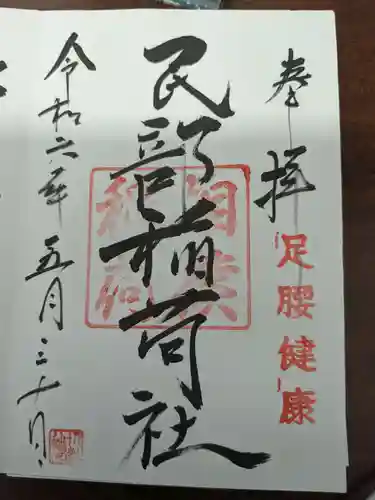 奉拝
足腰健康
民部稲荷社
令和六年五月三十日